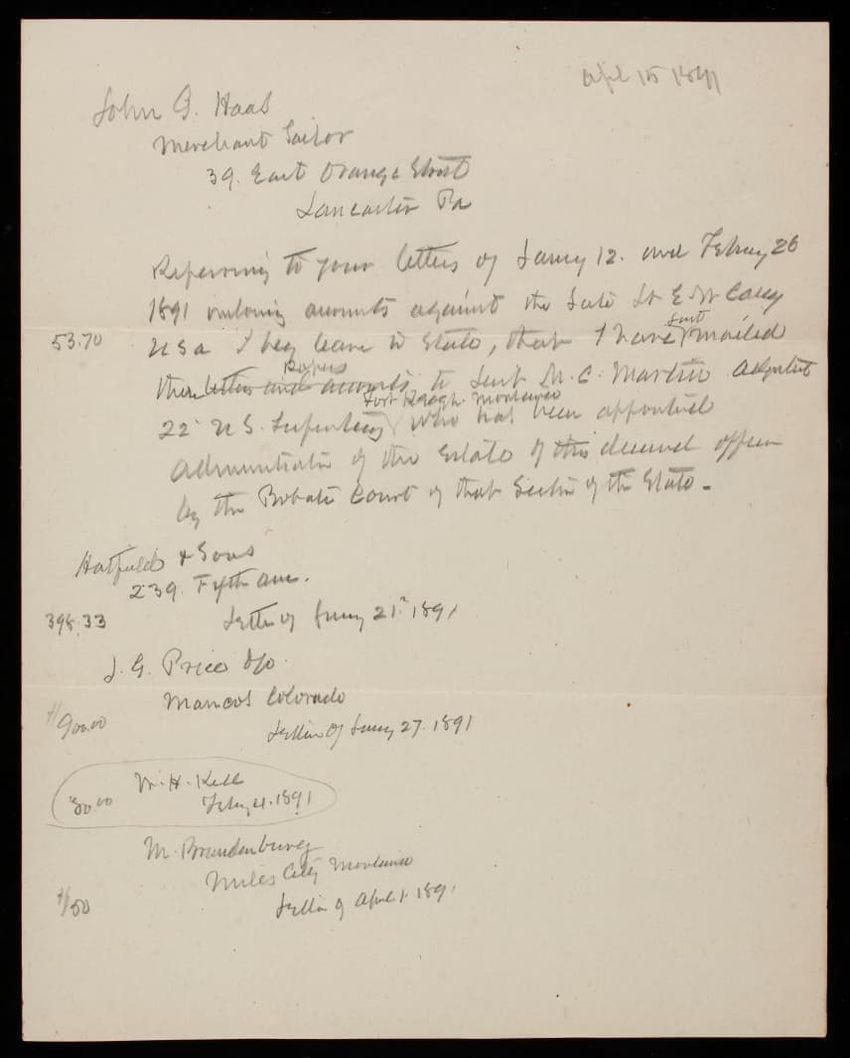 April 15 1891
John G. Haas
Merchant Tailor
39. East Orange Street
Lancaster Pa
Referring to your letters of Jany 12. and Febuy 26
1891 inclosing accounts against the late Lt E. W Casey
53.70 U S a I beg leave to state, that I have just mailed
the letters and accounts papers to Lieut M. C. Martin Adjutant
22d U S. Infantry Fort Keogh. Montana who has been appointed
Administrator of the Estate of this deceased officer
by the Probate Court of that Section of the State -
Hatfield & Sons
239. Fifth Ave.
398.33 Letter of Jany 21st 1891
J. G. Price
Mancos Colorado
$900.00 Letter of Jany 27. 1891
W. H. Kell
30.00 Feby 4. 1891
M. Brandenburg
Miles City Montana
$/50 Letter of April 1. 1891